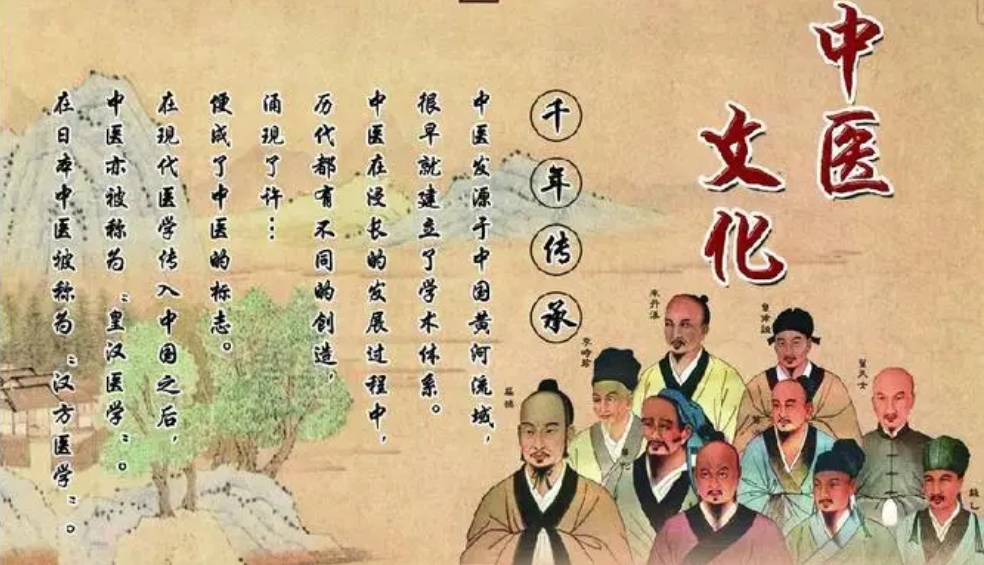 中医
文化
千年传承
中医发源于中国黄河流域，
很早就建立了学术体系。
中医在浸长的发展过程中，
历代都有不同的创造，
涌现了许…
便成了中医的标志。
在现代医学传入中国之后，
中医亦被称为“皇汉医学”。
在日本中医被称为“汉方医学”。
朱丹溪
李时珍
扁鹊
钱乙